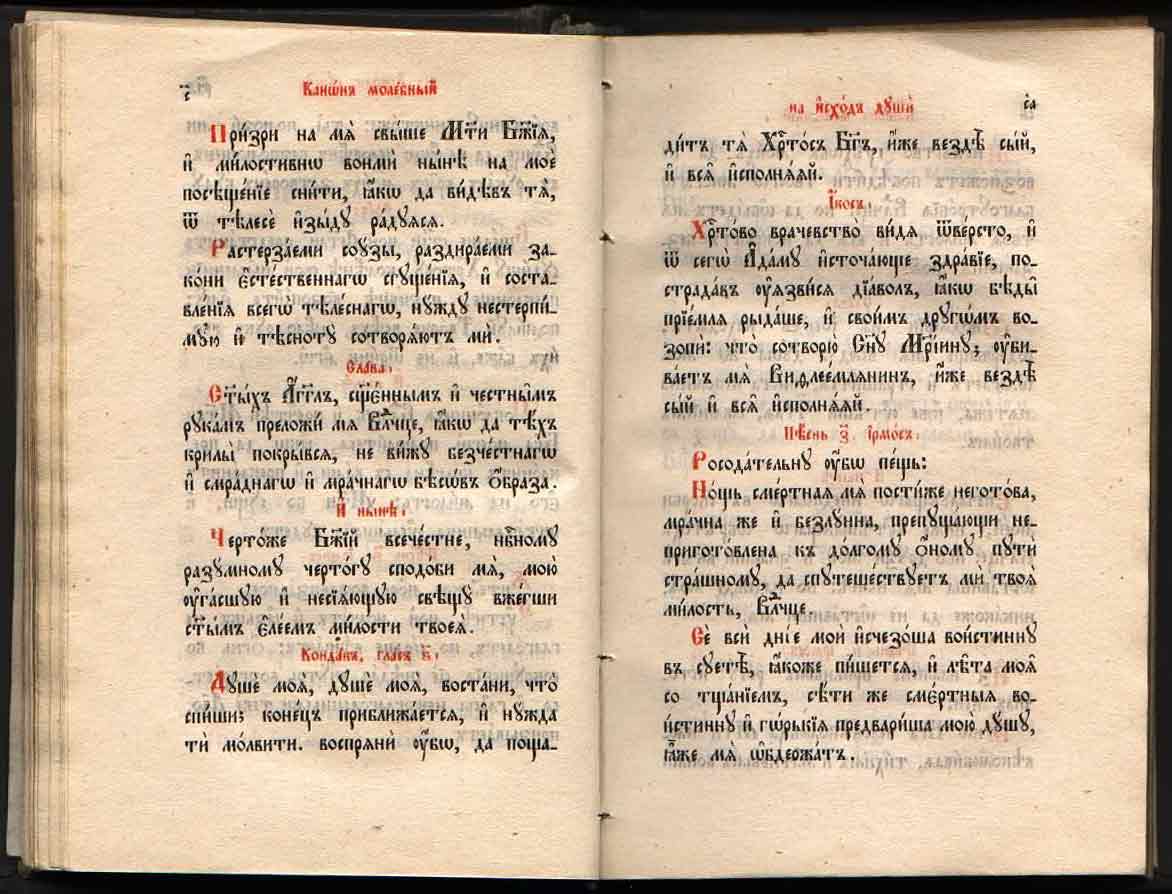 с҃
Кано́нъ моле́бный
При́зри на мѧ̀ свы́ше Мт҃и Бж҃їѧ,
и҆ ми́лостивнѡ вонмѝ ны́нѣ на моѐ
посѣще́нїе сни́ти, ꙗ҆́кѡ да ви́дѣвъ тѧ̀,
ѿ тѣлесѐ и҆зы́ду ра́дуѧсѧ.
Растерза́еми сою́зы, раздира́еми за_
ко́ни є҆сте́ственнагѡ сгуще́нїѧ, и҆ соста_
вле́нїѧ всегѡ̀ тѣле́снагѡ, ну́жду нестерпи́_
мую и҆ тѣсноту̀ сотворѧ́ютъ мѝ.
Сла́ва:
Ст҃ы́хъ А҆́гг҃лъ, сщ҃е́ннымъ и҆ честны́мъ
рука́мъ преложи́ мѧ Влⷣчце, ꙗ҆́кѡ да тѣ́хъ
крилы̀ покры́всѧ, не ви́жу безче́стнагѡ
и҆ смра́днагѡ и҆ мра́чнагѡ бѣсѡ́въ ѻ҆́браза.
И҆ ны́нѣ:
Черто́же Бж҃їй всече́стне, нбⷭ҇ному
разу́мному черто́гу сподо́би мѧ̀, мою̀
ᲂу҆га́сшую и҆ несїѧ́ющую свѣщу̀ вже́гши
ст҃ы́мъ є҆ле́емъ ми́лости твоеѧ̀.
Конда́къ, гла́съ ѕ҃:
Душѐ моѧ̀, душѐ моѧ̀, воста́ни, что̀
спи́ши; коне́цъ приближа́етсѧ, и҆ ну́жда
тѝ мо́лвити. воспрѧнѝ ᲂу҆̀бѡ, да поща_
на и҆схо́дъ душѝ
с҃а
ди́тъ тѧ̀ Хрⷭ҇то́съ Бг҃ъ, и҆́же вездѣ̀ сы́й,
и҆ всѧ̑ и҆сполнѧ́ѧй.
І҆́косъ:
Хрⷭ҇то́во врачевство̀ ви́дѧ ѿве́рсто, и҆
ѿ сегѡ̀ А҆да́му и҆сточа́юще здра́вїе, по_
страда́въ ᲂу҆ѧзви́сѧ дїа́волъ, ꙗ҆́кѡ бѣды̀
прїе́млѧ рыда́ше, и҆ свои́мъ другѡ́мъ во_
зопѝ: что̀ сотворю̀ Сн҃у Мр҃і́ину; ᲂу҆би_
ва́етъ мѧ̀ Виѳлее́млѧнинъ, и҆́же вездѣ̀
сы́й и҆ всѧ̑ и҆сполнѧ́ѧй.
Пѣ́снь з҃. і҆рмо́съ:
Росода́тельну ᲂу҆́бѡ пе́щь:
Но́щь сме́ртнаѧ мѧ̀ пости́же негото́ва,
мра́чна же и҆ безлу́нна, препуща́ющи не_
пригото́влена къ до́лгому ѻ҆́ному путѝ
стра́шному, да спутеше́ствуетъ мѝ твоѧ̀
ми́лость, Влⷣчце.
Сѐ всѝ дні́е моѝ и҆счезо́ша вои́стинну
въ суетѣ̀, ꙗ҆́коже пи́шетсѧ, и҆ лѣ̑та моѧ̑
со тща́нїемъ, сѣ̑ти же смє́ртныѧ во_
и́стинну и҆ гѡ́рькїѧ предвари́ша мою̀ ду́шу,
ꙗ҆̀же мѧ̀ ѡ҆бдержа́тъ.